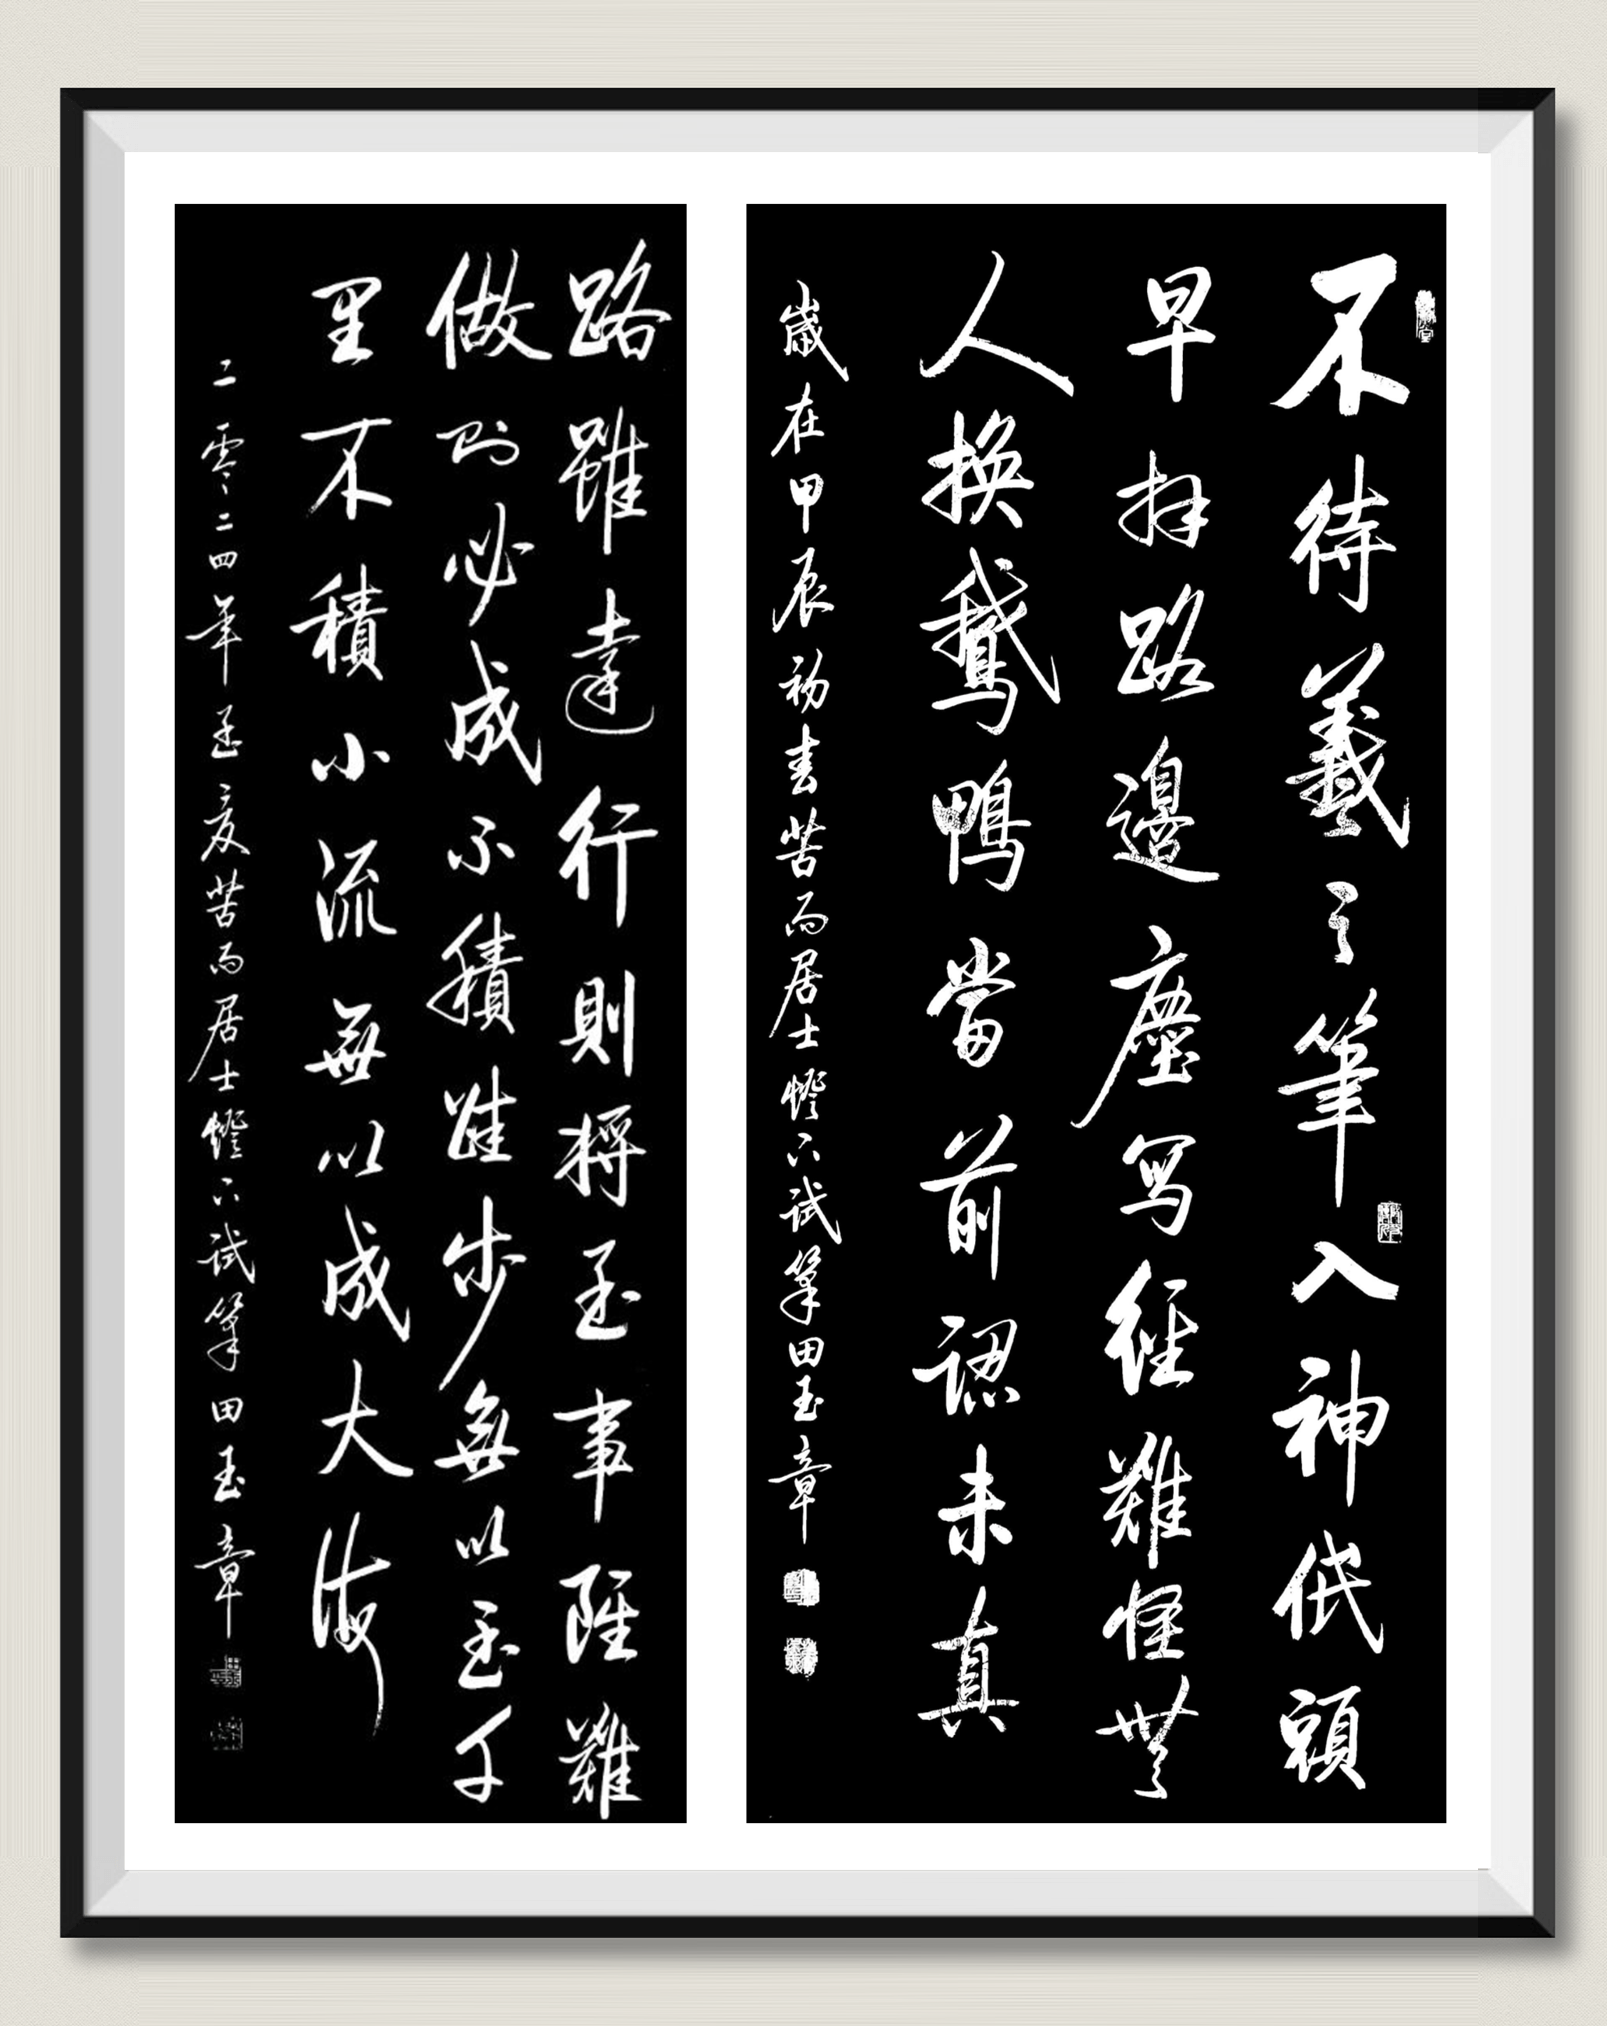 不待羲之筆入神低頭
早拜路邊塵写经難怪無
人換鵝鴨當前認未真
歲在甲辰初春苦雨居士燈下試筆田玉章
路雖遠行則將至事雖難
做則必成不積跬步無以至千
里不積小流無以成大海
二零二四年孟夏苦雨居士燈下試筆田玉章